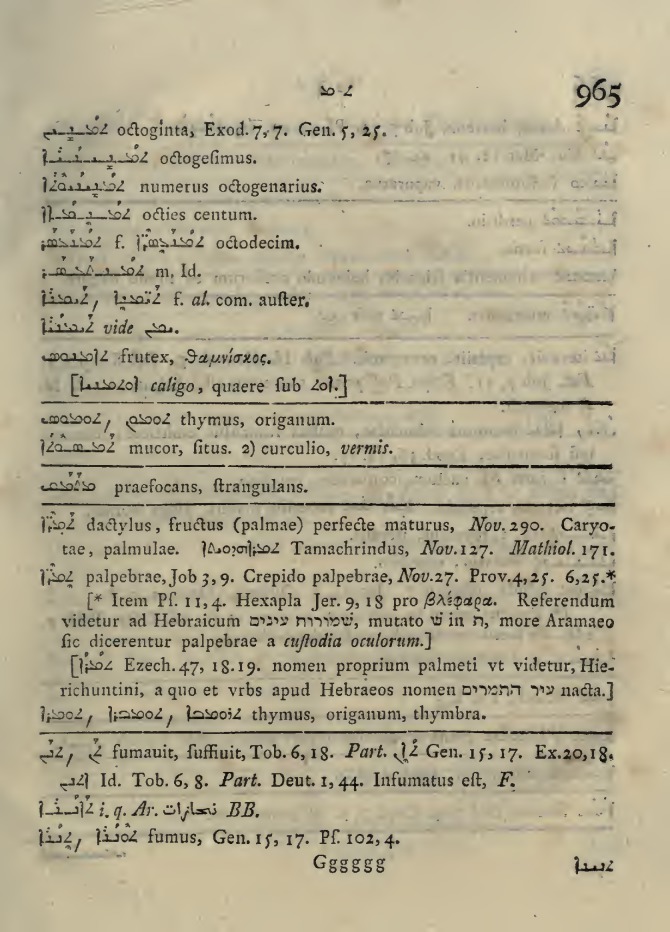 ܬ - ܡ 965
ܬܡܢܝܢ octoginta, Exod. 7, 7. Gen. 5, 25.
ܬܡܢܝܢܝܐ octogeſimus.
ܬܡܢܝܢܘܬܐ numerus octogenarius.
ܬܡܢܝܡܐܐ octies centum.
ܬܡܢܥܣܪ f. octodecim.
ܬܡܢܬܥܣܪ m, Id.
ܬܝܡܢܐ, f. al. com. auſter.
ܬܝܡܢܝܐ vide ܝܡܢ.
frutex, θαμνίσκος.
[ caligo, quaere ſub ]
thymus, origanum.
mucor, ſitus. 2) curculio, vermis.
praefocans, ſtrangulans.
ܬܡܪܐ dactylus, fructus (palmae) perfecte maturus, Nov. 290. Caryo-
tae, palmulae. Tamachrindus, Nov. 127. Mathiol. 171.
ܬܡܪܐ palpebrae, Job 3, 9. Crepido palpebrae, Nov. 27. Prov. 4, 25. 6, 25.*
[* Item Pſ. 11, 4. Hexapla Jer. 9, 18 pro βλέφαρα. Referendum
videtur ad Hebraicum שמורות עינים, mutato ש in ת, more Aramaeo
ſic dicerentur palpebrae a cuſtodia oculorum.]
[ܬܡܪܐ Ezech. 47, 18. 19. nomen proprium palmeti vt videtur, Hie-
richuntini, a quo et vrbs apud Hebraeos nomen עיר התמרים nacta.]
thymus, origanum, thymbra.
ܬܢܢ, ܬܢ fumauit, ſuffiuit, Tob. 6, 18. Part. Gen. 15, 17. Ex. 20, 18.
ܐܬܢ Id. Tob. 6, 8. Part. Deut. 1, 44. Infumatus eſt, F.
i. q. Ar. BB.
ܬܢܢܐ, fumus, Gen. 15, 17. Pſ. 102, 4.
Gggggg